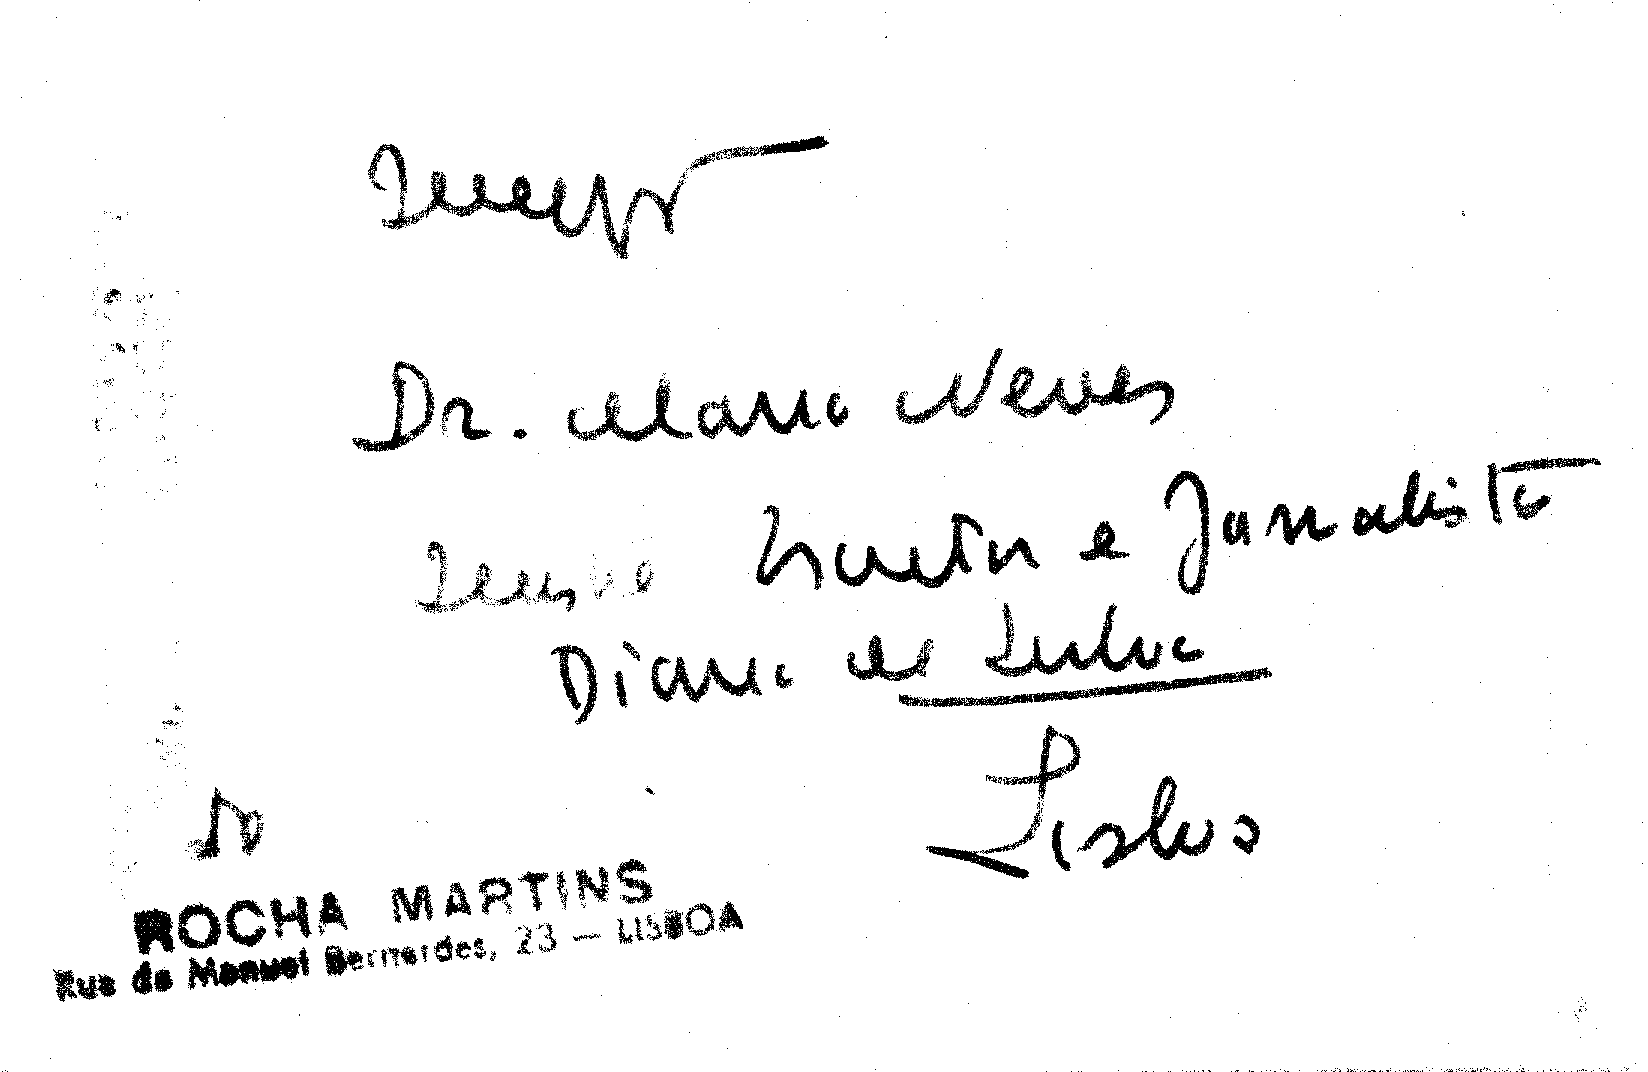 Dr. Mario Neves
Ilustre Escritor e Jornalista
Diario de Lisboa
Lisboa
do
ROCHA MARTINS
Rua de Manuel Bernardes, 23 — LISBOA